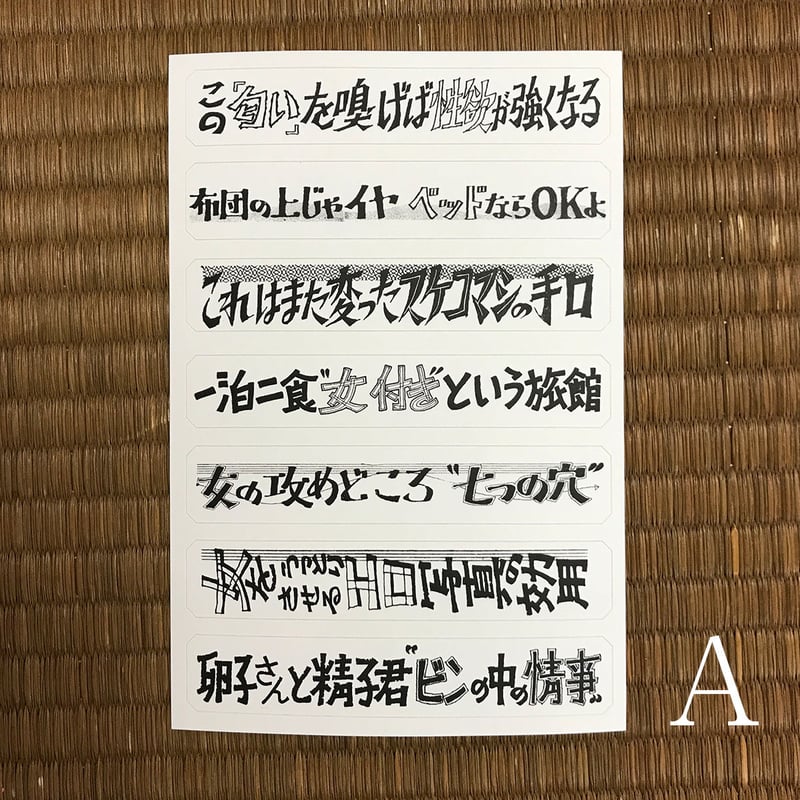 この『匂い』を嗅げば性欲が強くなる
布団の上じゃイヤ ベッドならOKよ
これはまた変ったスケコマシの手口
一泊二食〝女付き〟という旅館
女の攻めどころ〝七つの穴〟
女をうっとりさせるエロ写真の効用
卵子さんと精子君〝ビンの中の情事〟
A